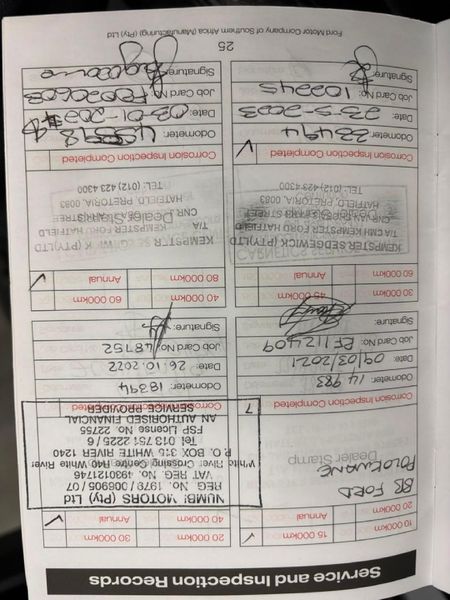 Service and Inspection Records
10 000km 15 000km
20 000km Annual
BB FORD
POLOKWANE
Dealer Stamp
Corrosion Inspection Completed
Odometer: 14 983
Date: 09/03/2021
Job Card No:
Signature:
20 000km 30 000km
40 000km Annual
NUMBI MOTORS (Pty) Ltd
REG. No. 1978 / 006905 / 07
VAT REG. No. 4930121746
White River Crossing Centre R40 White River
P.O. BOX 315 WHITE RIVER 1240
Tel 013 751 2225 / 6
FSP License No. 22755
AN AUTHORISED FINANCIAL
SERVICE PROVIDER
Odometer: 18394
Date: 26.10.2022
Job Card No: 48752
Signature:
30 000km 45 000km
60 000km Annual
KEMPSTER SEDGEWICK (PTY)LTD
T/A CMH KEMPSTER FORD HATFIELD
HATFIELD, PRETORIA, 0083
TEL: (012) 423 4300
Corrosion Inspection Completed
Odometer: 33494
Date: 23-5-2023
Job Card No: 102245
Signature:
40 000km 60 000km
80 000km Annual
KEMPSTER
T/A KEMPSTER FORD HATFIELD
Dealer Stamp
HATFIELD, PRETORIA, 0083
TEL: (012) 423 4300
Corrosion Inspection Completed
Odometer:
Date: 03-01-2024
Job Card No:
Signature:
25
Ford Motor Company of Southern Africa (Manufacturing) (Pty) Ltd